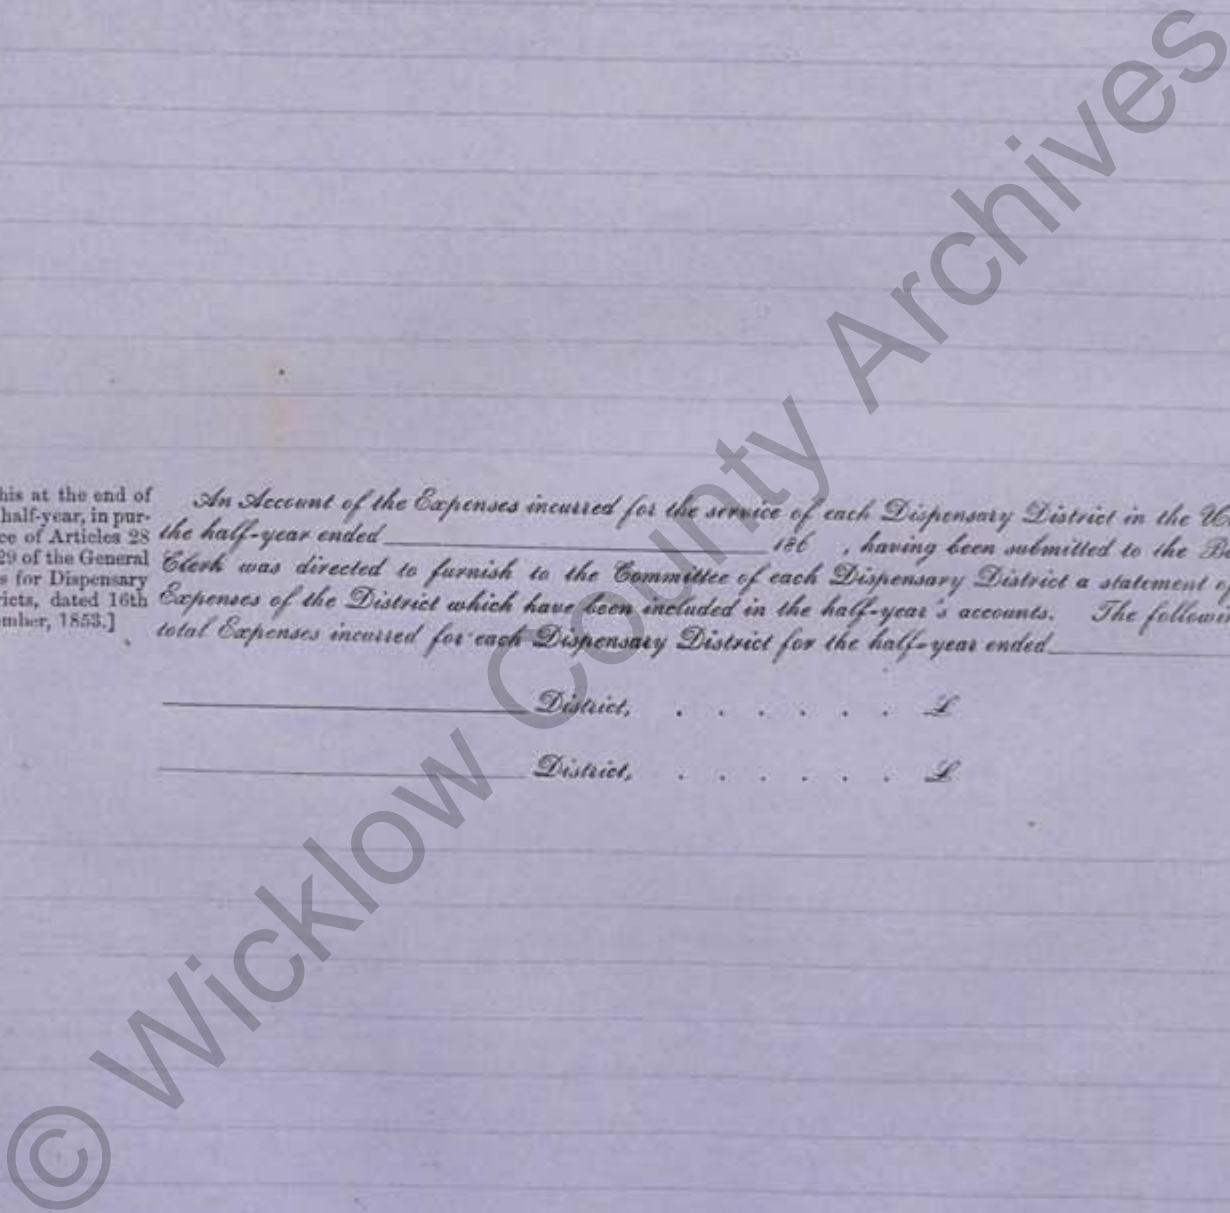 his at the end of
half-year, in pur-
ce of Articles 28
29 of the General
s for Dispensary
ricts, dated 16th
mber, 1853.]
An Account of the Expenses incurred for the service of each Dispensary District in the U
the half-year ended ______ 186 , having been submitted to the B
Clerk was directed to furnish to the Committee of each Dispensary District a statement o
Expenses of the District which have been included in the half-year's accounts. The followin
total Expenses incurred for each Dispensary District for the half-year ended ______
______ District, . . . . . . £
______ District, . . . . . . £
© Wicklow County Archives